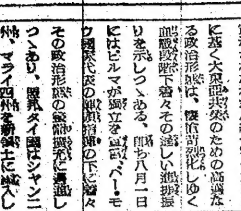 に基く大東亜共榮のための高邁な
る政治形態は、懐治苛烈化しゆく
血戰段階下着々その逞しい進捗振
りを示しつゝある、即ち八月一日
にはビルマが獨立を宣言、バー・モ
ウ國家代表の陣頭指揮の下に着々
その政治形態の整備擴充に邁進し
つゝあり、盟邦タイ國はシャン二
州、マライ四州を新領土に編入し